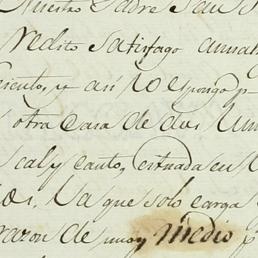 Nuestro Padre San
redito satisfago annual
y así lo espongo p
otra casa de dos
cal y canto, situada en
que solo carga
razon de uno y medio p